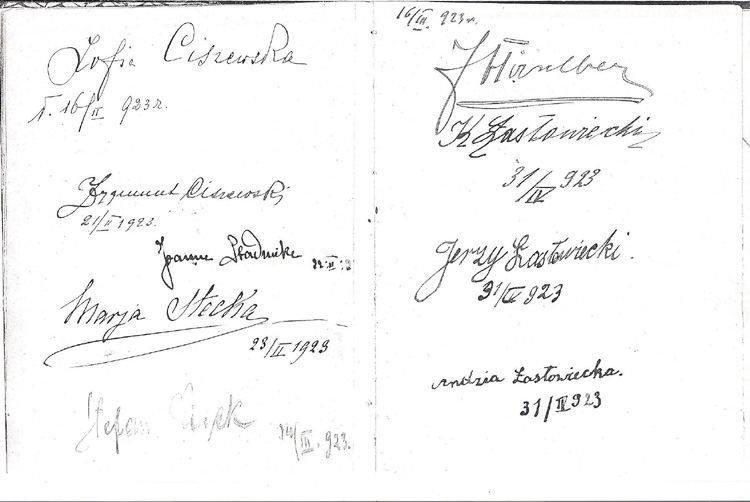 Zofia Ciszewska
16/II 923 r.
Zygmunt Ciszewski
21/II 1923.
Joanna Stadnik
22.II.
Marja Stecka
23/II 1923
Stefan
/III. 923.
16/III. 923 r.
K Zastowiecki
31/IV 923
Jerzy Zastowiecki.
31/IV 923
Andzia Zastowiecka.
31/IV 923